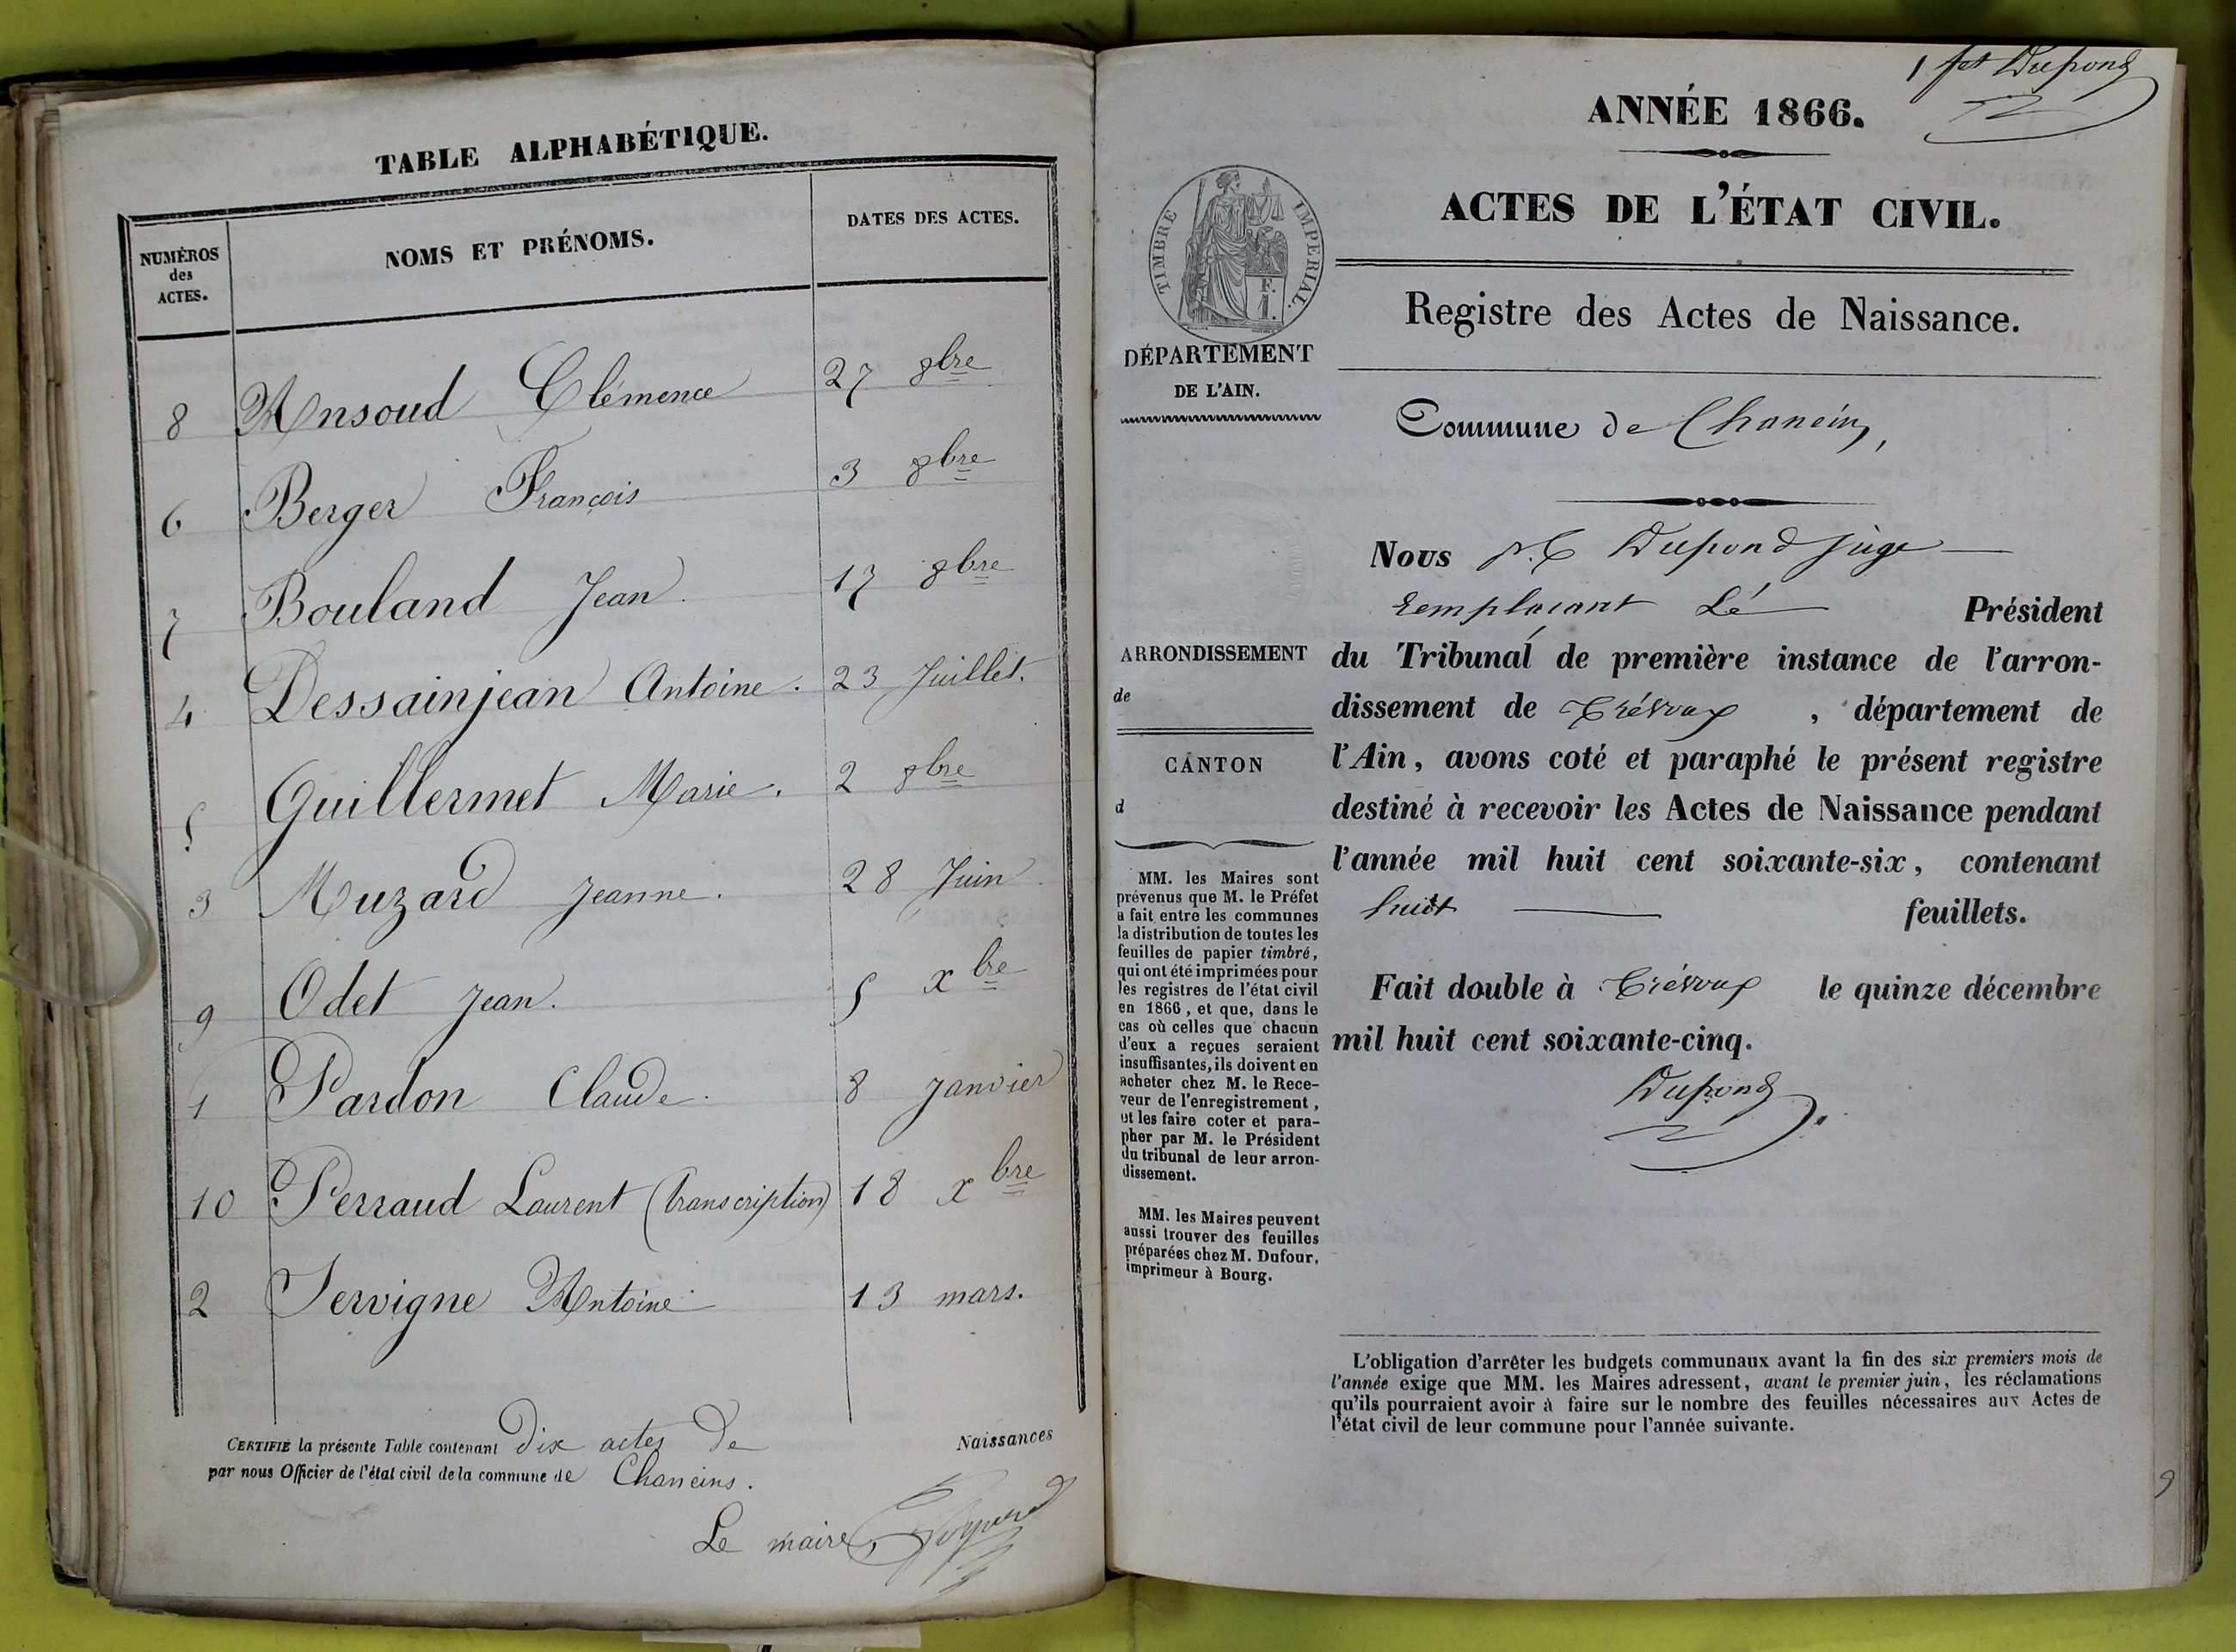 TABLE ALPHABÉTIQUE.
NUMÉROS des ACTES. NOMS ET PRÉNOMS. DATES DES ACTES.
8 Ansoud Clémence 27 8bre
6 Berger François 3 8bre
7 Bouland Jean. 17 8bre
4 Dessainjean Antoine. 23 Juillet.
5 Guillermet Marie. 2 8bre
3 Muzard Jeanne. 28 Juin
9 Odet Jean. 5 xbre
1 Pardon Claude. 8 Janvier
10 Perraud Laurent (transcription) 18 xbre
2 Servigne Antoine 13 mars.
CERTIFIÉ la présente Table contenant dix actes de Naissances
par nous Officier de l'état civil de la commune de Chaneins.
Le maire,
1 fet Dupond
ANNÉE 1866.
ACTES DE L'ÉTAT CIVIL.
Registre des Actes de Naissance.
TIMBRE IMPÉRIAL.
F.
1.
DÉPARTEMENT
DE L'AIN.
ARRONDISSEMENT
de
CANTON
d
MM. les Maires sont
prévenus que M. le Préfet
a fait entre les communes
la distribution de toutes les
feuilles de papier timbré,
qui ont été imprimées pour
les registres de l'état civil
en 1866, et que, dans le
cas où celles que chacun
d'eux a reçues seraient
insuffisantes, ils doivent en
acheter chez M. le Rece-
veur de l'enregistrement,
et les faire coter et para-
pher par M. le Président
du tribunal de leur arron-
dissement.
MM. les Maires peuvent
aussi trouver des feuilles
préparées chez M. Dufour,
imprimeur à Bourg.
Commune de Chanein,
Nous Dupond juge
remplaçant Lé Président
du Tribunal de première instance de l'arron-
dissement de Trévoux, département de
l'Ain, avons coté et paraphé le présent registre
destiné à recevoir les Actes de Naissance pendant
l'année mil huit cent soixante-six, contenant
huit feuillets.
Fait double à Trévoux le quinze décembre
mil huit cent soixante-cinq.
Dupond
L'obligation d'arrêter les budgets communaux avant la fin des six premiers mois de
l'année exige que MM. les Maires adressent, avant le premier juin, les réclamations
qu'ils pourraient avoir à faire sur le nombre des feuilles nécessaires aux Actes de
l'état civil de leur commune pour l'année suivante.
9